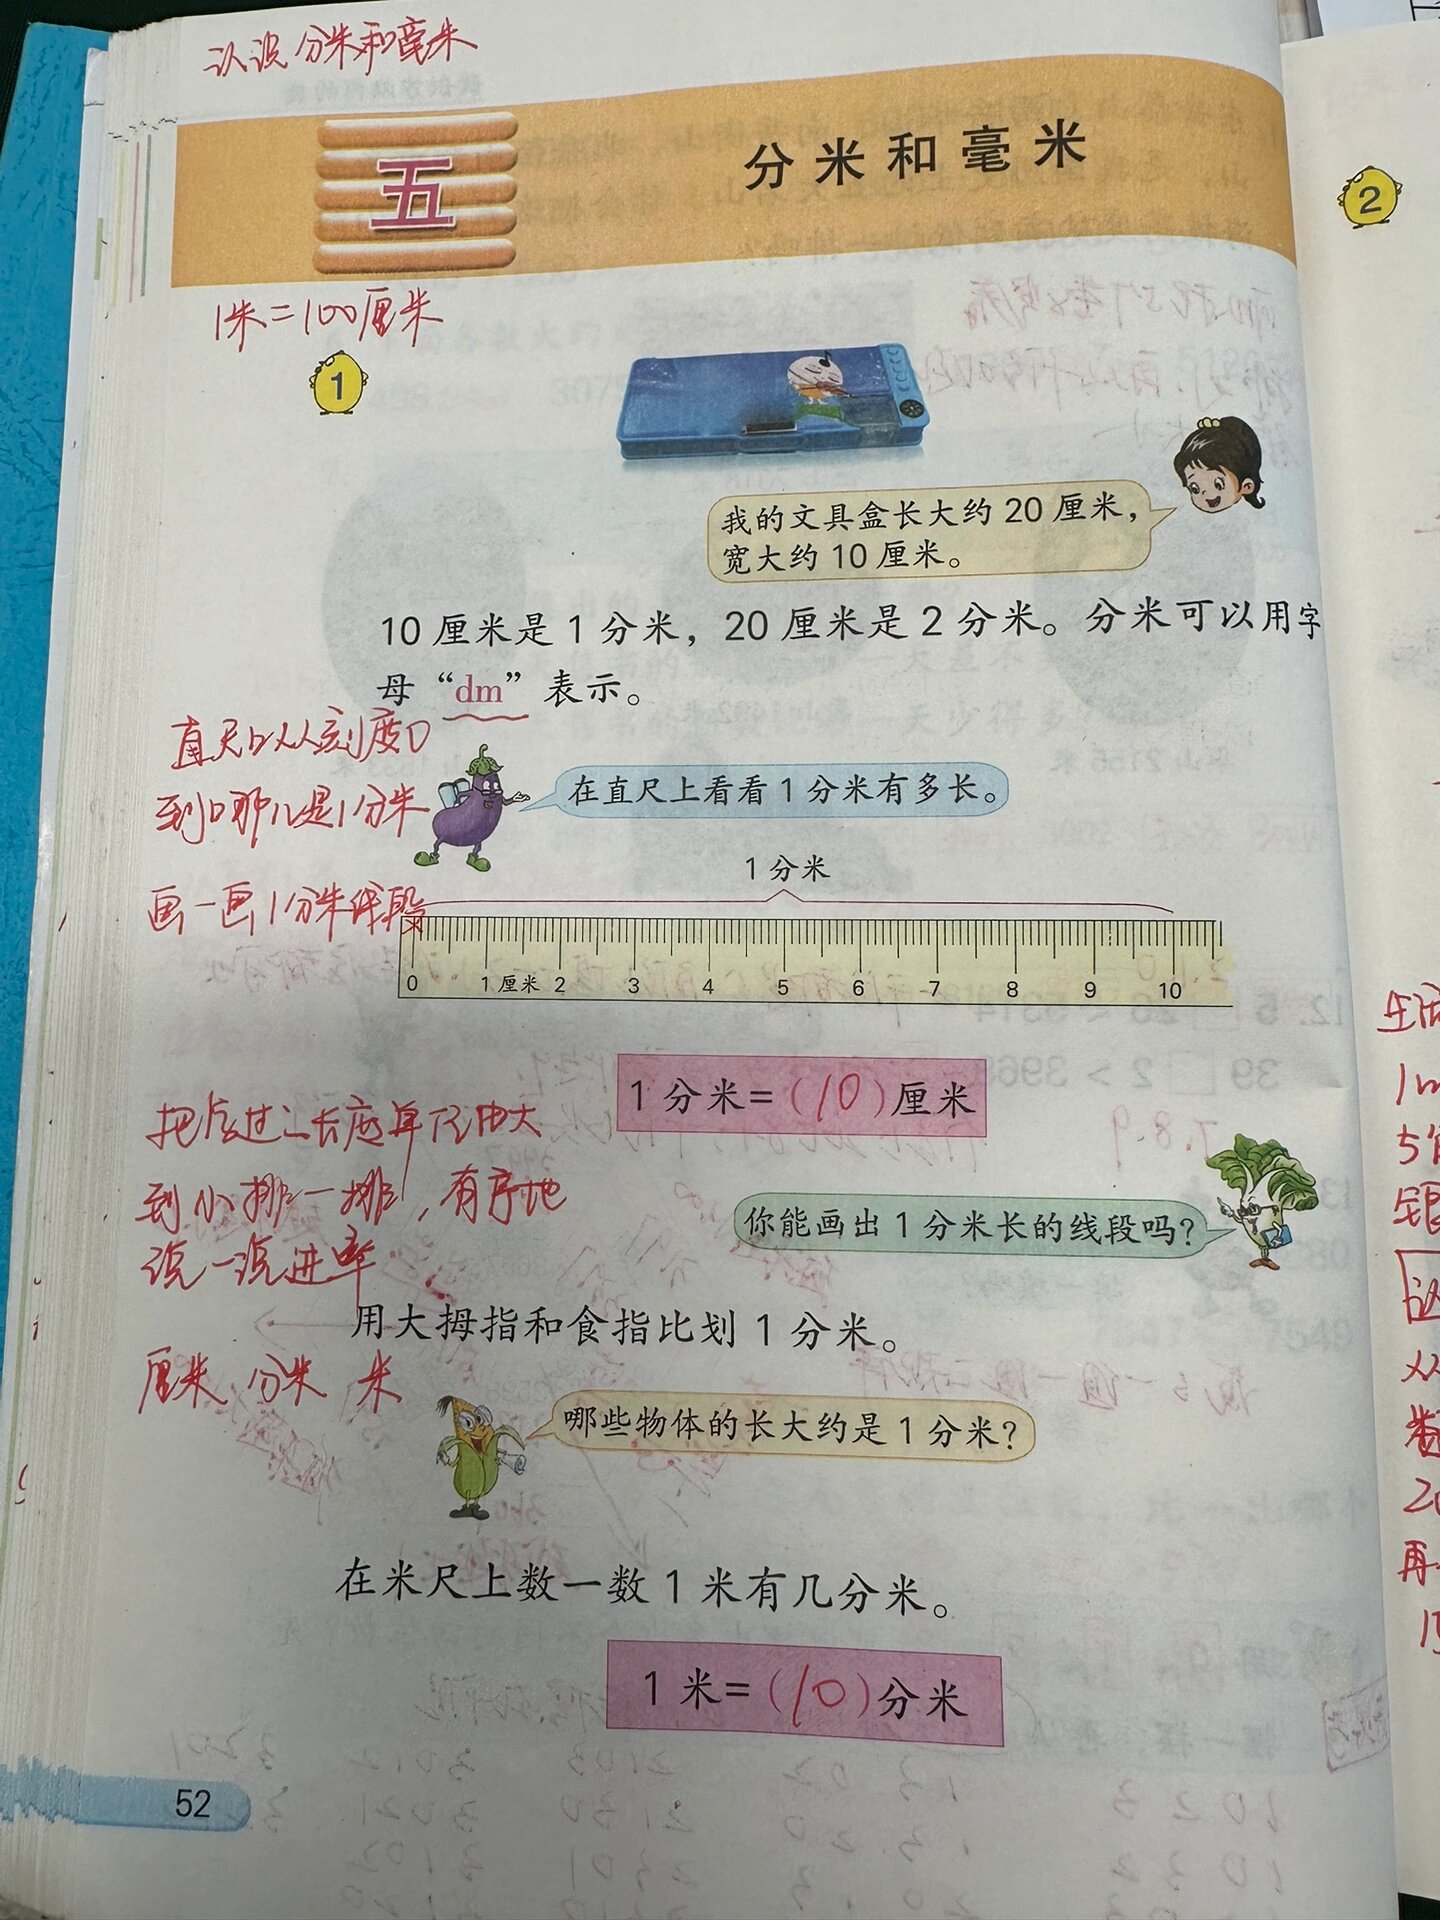 认识分米和毫米
五
分米和毫米
1米=100厘米
1
2
我的文具盒长大约 20 厘米，
宽大约 10 厘米。
10 厘米是 1 分米，20 厘米是 2 分米。分米可以用字
母“dm”表示。
直尺上从刻度0
到哪儿是1分米
在直尺上看看 1 分米有多长。
画一画1分米线段
1 分米
0 1 厘米 2 3 4 5 6 7 8 9 10
1 分米=（10）厘米
把学过的长度单位由大
到小排一排，有序地
说一说进率
你能画出 1 分米长的线段吗？
用大拇指和食指比划 1 分米。
厘米 分米 米
哪些物体的长大约是 1 分米？
在米尺上数一数 1 米有几分米。
1 米=（10）分米
52